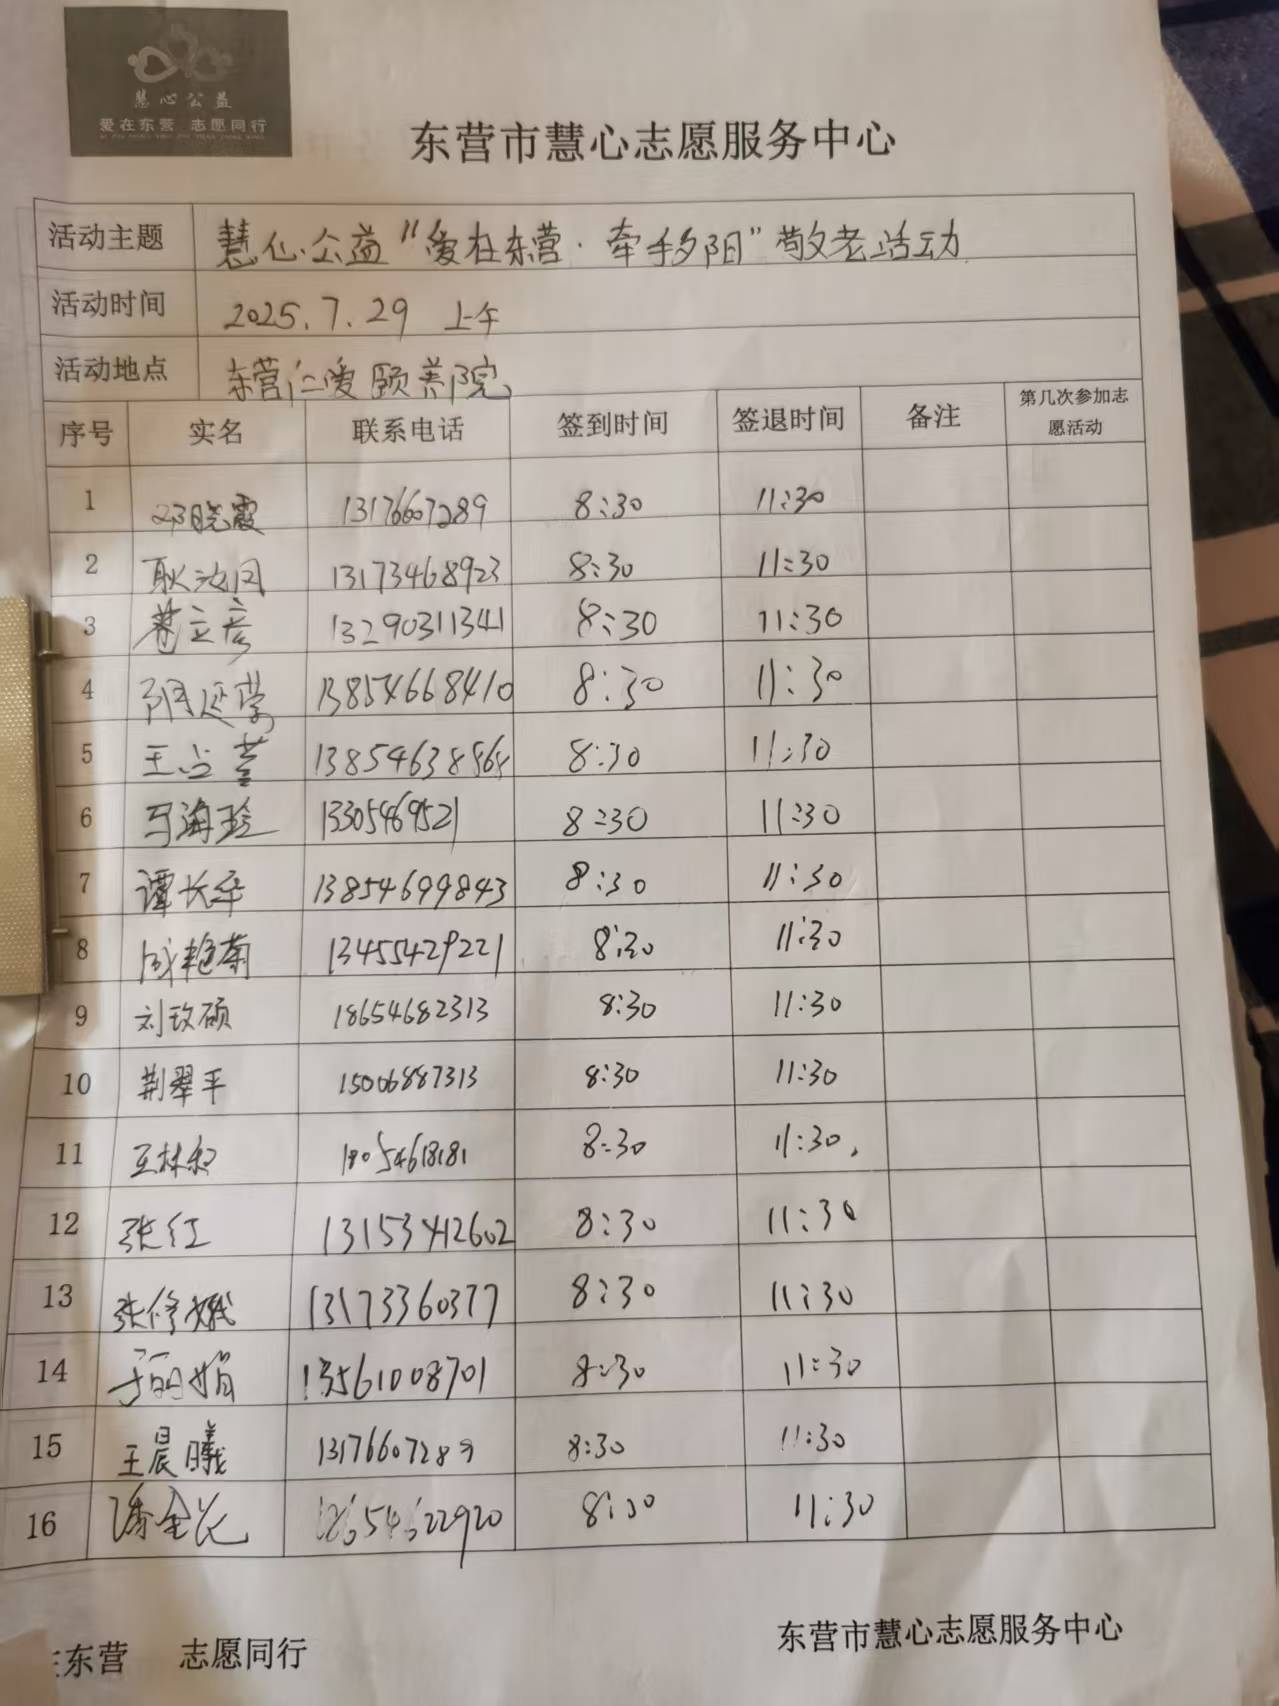 慧心公益
爱在东营 志愿同行
东营市慧心志愿服务中心
活动主题 慧心公益“爱在东营·牵手夕阳”敬老活动
活动时间 2025.7.29 上午
活动地点 东营仁爱颐养院
序号 实名 联系电话 签到时间 签退时间 备注 第几次参加志愿活动
1 邓晓霞 13176607289 8:30 11:30
2 耿 13173468923 8:30 11:30
3 立彦 13290311341 8:30 11:30
4 延营 13854668410 8:30 11:30
5 王 13854638868 8:30 11:30
6 马海珍 13305469521 8:30 11:30
7 谭长华 13854699843 8:30 11:30
8 成艳菊 13455429221 8:30 11:30
9 刘玫硕 18654682313 8:30 11:30
10 荆翠平 15006887313 8:30 11:30
11 王林 18054618181 8:30 11:30
12 张红 13153412602 8:30 11:30
13 张修娥 13173360377 8:30 11:30
14 于丽娟 13561008701 8:30 11:30
15 王晨曦 13176607289 8:30 11:30
16 潘金花 8:30 11:30
东营 志愿同行
东营市慧心志愿服务中心